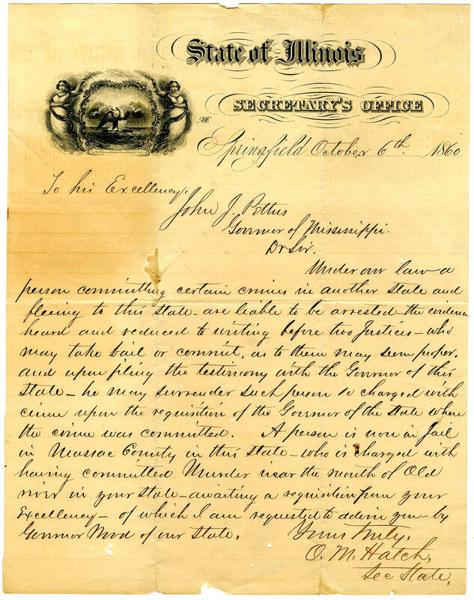 State of Illinois
SECRETARY'S OFFICE
Springfield October 6th 1860
To his Excellency,
John J. Pettus
Govnor of Mississippi.
Dr Sir.
Under our law a
person committing certain crimes in another State and
fleeing to this State are liable to be arrested the evidence
heard and reduced to writing before two Justices - who
may take bail or commit, as to them may seem proper,
and upon filing the testimony with the Govnor of this
State - he may surrender such person so charged with
crime upon the requisition of the Govnor of the State where
the crime was committed. A person is now in Jail
in Massac County in this State - who is charged with
having committed Murder near the mouth of Old
river in your State - awaiting a requisition from your
Excellency - of which I am requested to advise you - by
Govnor Wood of our State.
Yours Truly,
O. M. Hatch,
Sec State.